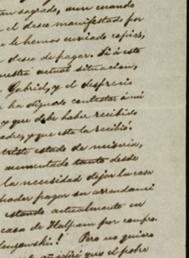 tan sagrado, aun cuando
el deseo manifestado por
le hemos enviado copias,
deseo de pagar. Si á esto
nuestra actual situacion,
Gabriel, y el desprecio
ha dignado contestar á mi
y que debe haber recibido
y que esta la recibió.
triste estado de miseria,
aumentado tanto desde
la necesidad dejar la casa
poder pagar su arrendami
estando actualmente en
casa de Tlalpam por compa
! Pero no quiero
añadiré que el pobre